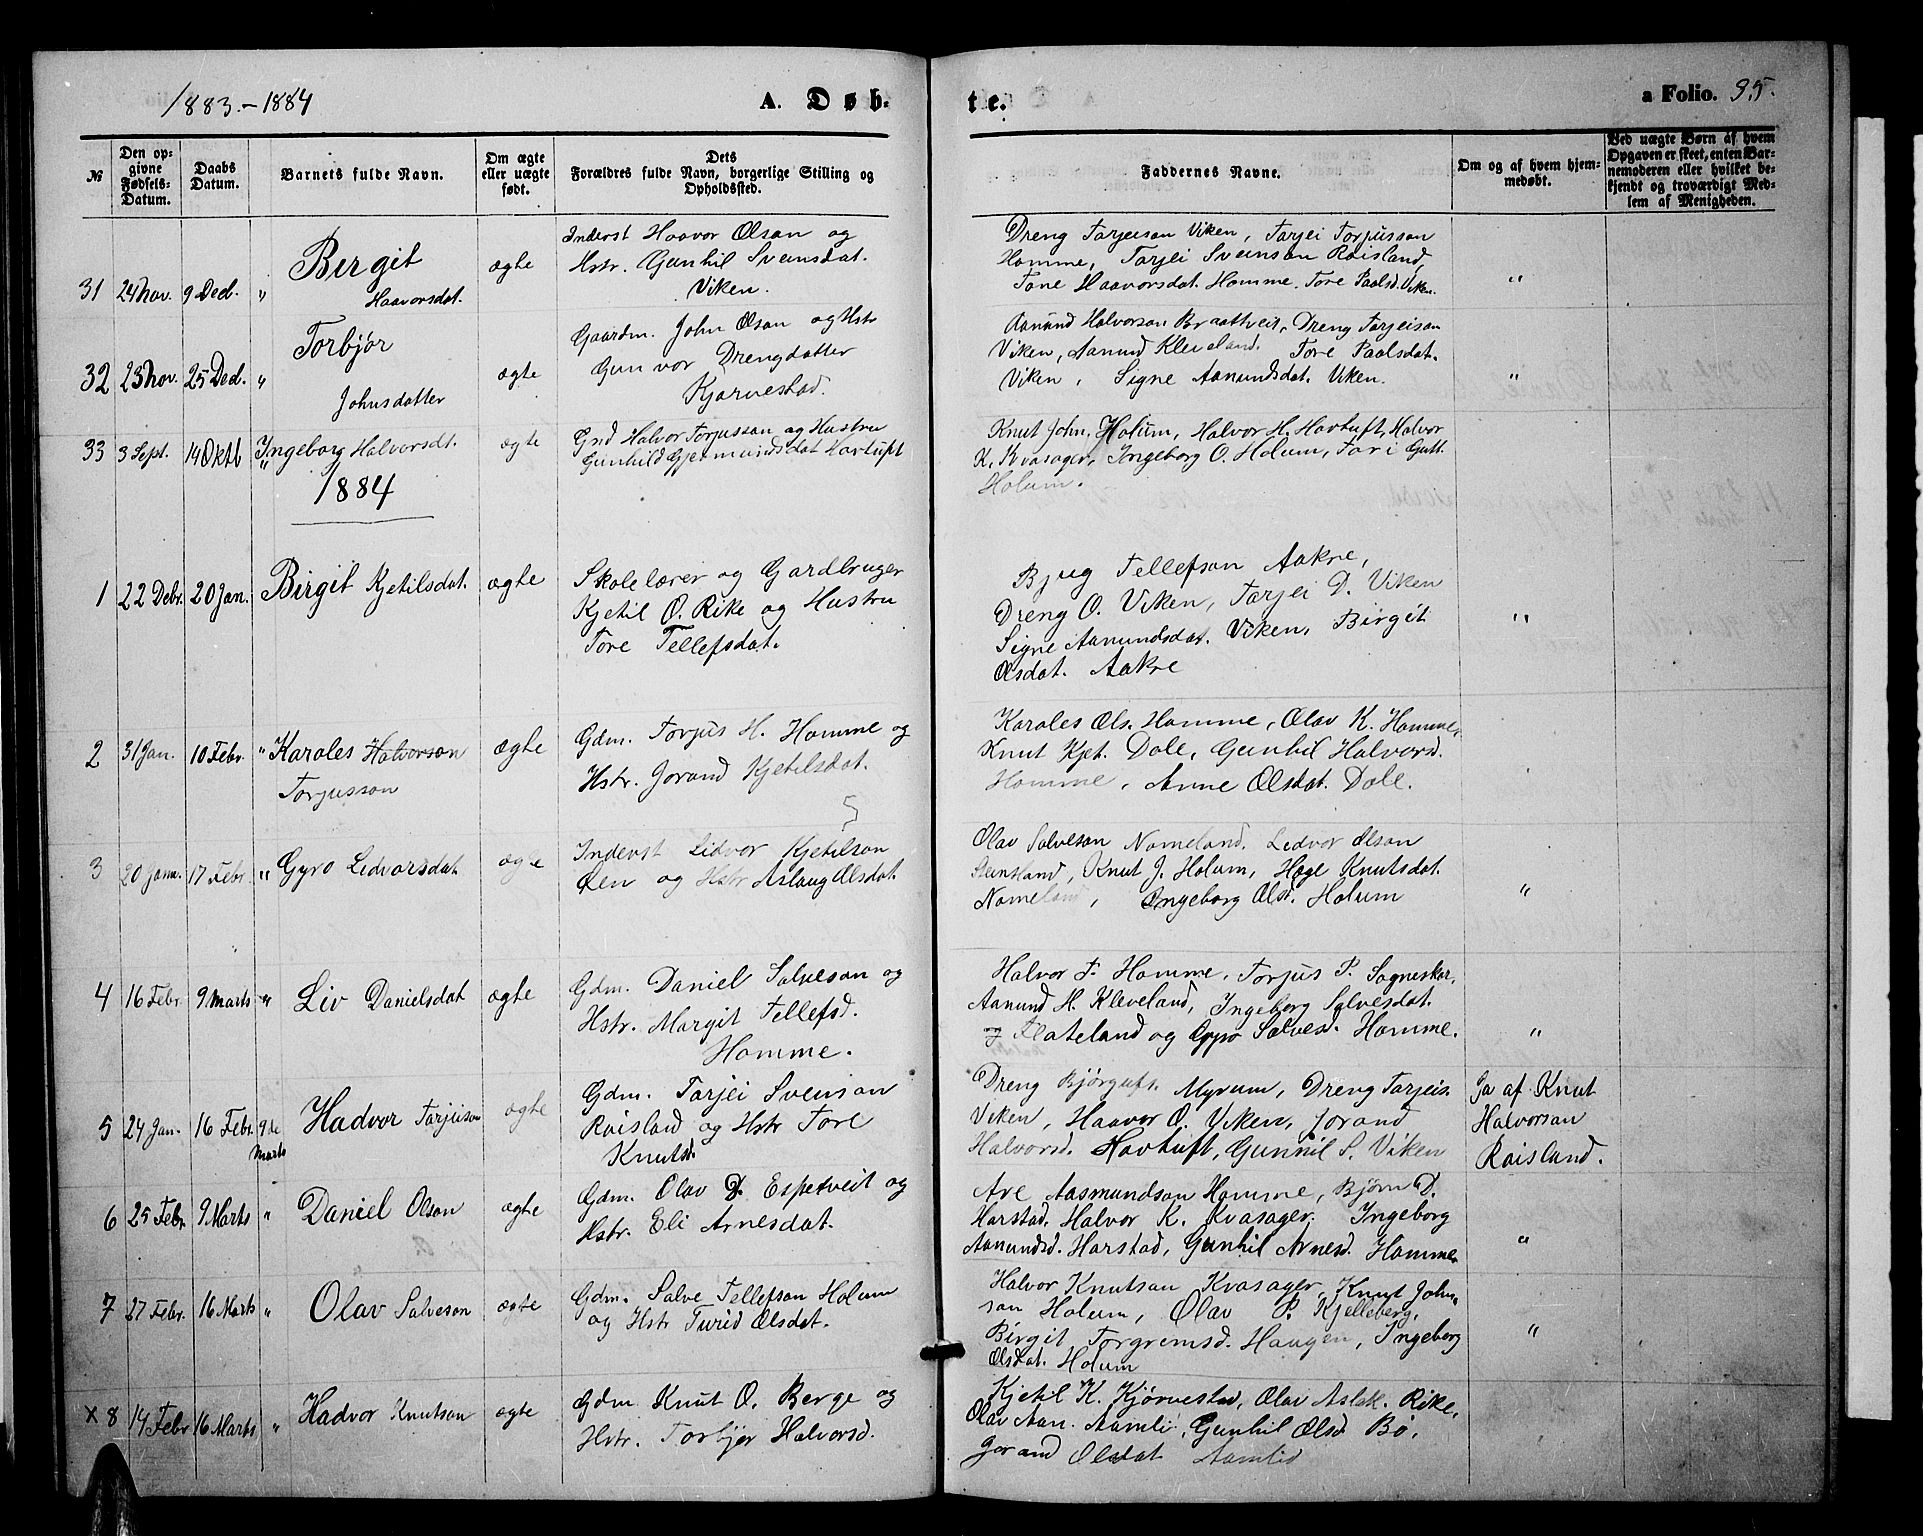 1883.-1884
A. Døb-
te.
a Folio. 95.
№
Den op-
givne
Fødsels-
Datum.
Daabs
Datum.
Barnets fulde Navn.
Om ægte
eller uægte
født.
Dets
Forældres fulde Navn, borgerlige Stilling og
Opholdssted.
Faddernes Navne.
Om og af hvem hjem-
medøbt.
Ved uægte Børn af hvem
Opgaven er skeet, enten Bar-
nemoderen eller hvilket be-
kjendt og troværdigt Med-
lem af Menigheden.
31 24 Nov. 9 Ded. "
Birgit
Haavorsdat.
ægte
Inderst Haavor Olsan og
Hstr. Gunhil Svensdat.
Viken.
Dreng Tarjeisan Viken, Tarjei Torjusson
Homme, Tarjei Sveinsan Røisland,
Tone Haavorsdat. Homme. Tore Paalsd. Viken.
"
32 23 Nov. 25 Ded. "
Torbjør
Johnsdatter
ægte
Gaardm. John Olsan og Hstr
Gunvor Drengdatter
Kjørvestad.
Aanund Halvorsan Braattveit, Dreng Tarjeisan
Viken, Aanund Kleveland. Tore Paalsdat.
Viken, Signe Aanundsdat. Viken.
"
33 3 Sept. 14 Oktb "
Ingeborg Halvorsdt.
ægte
Grd Halvor Torjusson og Hustru
Gunhild Gjermundsdat Hartuft
Knut John. Holum, Halvor H. Hovtuft, Halvor
K. Kvasager, Ingeborg O. Holum, Tori Gutt.
Holum.
1884
1 22 Debr. 20 Jan.
Birgit Kjetilsdat.
ægte
Skolelærer og Gardbruger
Kjetil O. Rike og Hustru
Tore Tellefsdat.
Bjug Tellefson Aakre,
Dreng O. Viken, Tarjei D. Viken
Signe Aanundsdat. Viken, Birgit
Olsdat. Aakre
"
2 31 Jan. 10 Febr. "
Karoles Halvorson
Torjusson
ægte
Gdm. Torjus H. Homme og
Hstr. Jorand Kjetilsdat.
Karoles Ols. Homme, Olav K. Homme,
Knut Kjet. Dale, Gunhil Halvorsd.
Homme, Anne Olsdat. Dale.
3 20 Janu. 17 Febr. "
Gyro Ledvorsdat
ægte
Inderst Lidvor Kjetilson
Øen og Hstr Aslaug Olsdat.
Olav Salveson Nomeland, Ledvor Olson
Steinsland, Knut J. Holum, Hæge Knutsdat.
Nomeland, Ingeborg Olsd. Holum
"
4 16 Febr. 9 Marts "
Liv Danielsdat
ægte
Gdm. Daniel Salveson og
Hstr. Margit Tellefsd.
Homme.
Halvor T. Homme, Torjus P. Sagneskar,
Aanund H. Kleveland, Ingeborg Salvesdat.
og Flateland og Gyro Salvesd. Homme.
"
5 24 Jan. 16 Febr. 9de
Marts
Hadvor Tarjeison
ægte
Gdm. Tarjei Svenson
Røisland og Hstr Tore
Knutsd.
Dreng Bjørgufs. Myrum, Dreng Tarjeis.
Viken, Haavor O. Viken, Jorand
Halvorsd. Hovtuft, Gunhil S. Viken
Ja af Knut
Halvorsan
Røisland.
6 25 Febr. 9 Marts "
Daniel Olson
ægte
Gdm. Olav D. Espetveit og
Hstr. Eli Arnesdat.
Are Aasmundson Homme, Bjørn D.
Harstad, Halvor K. Kvasager. Ingeborg
Aanundsd. Harstad, Gunhil Arnesd. Homme
"
7 27 Febr. 16 Marts "
Olav Salveson
ægte
Gdm. Salve Tellefson Holum
og Hstr Turid Olsdat.
Halvor Knutsan Kvasager, Knut John-
son Holum, Olav P. Kjelleberg,
Birgit Torgremsd. Haugen, Ingeborg
Olsdat. Holum
"
x 8 14 Febr 16 Marts "
Hadvor Knutson
ægte
Gdm Knut O. Berge og
Hstr. Torbjør Halvorsd.
Kjetil K. Kjørvestad, Olav Aslak. Rike,
Olav Aan. Aamli, Gunhil Olsd Bø,
Jorand Olsdat Aamlid